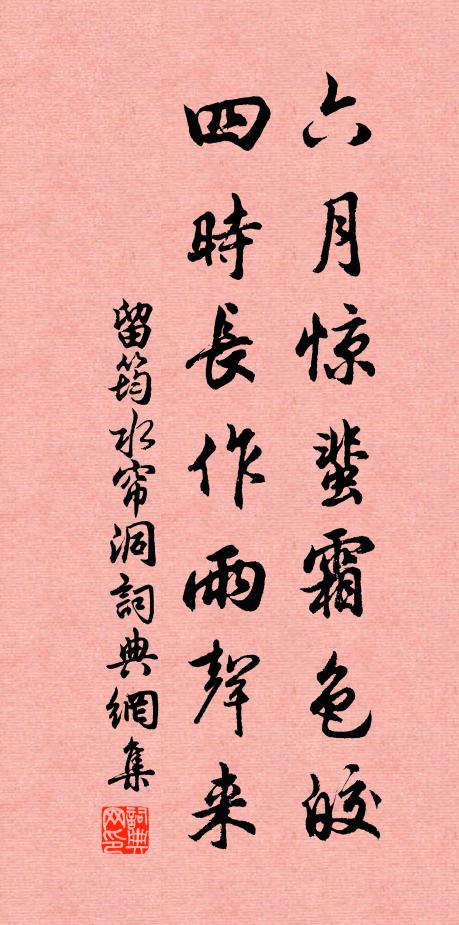 六月惊蜚霜色皎
四時長作雨聲来
留筠水帘洞詞典網集
詞典网印